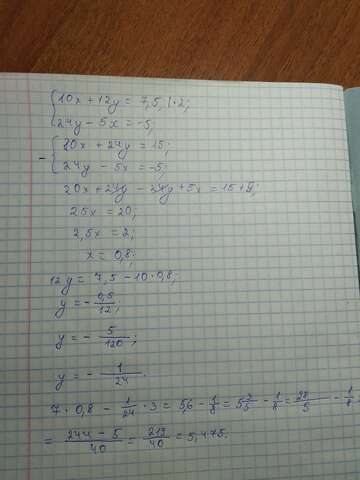 10x + 12y = 7,5 | · 2;
24y - 5x = -5;
20x + 24y = 15;
24y - 5x = -5;
20x + 24y - 24y + 5x = 15 + 5;
25x = 20;
2,5x = 2;
x = 0,8;
12y = 7,5 - 10 · 0,8;
y = - 0,5/12;
y = - 5/120;
y = - 1/24.
7 · 0,8 - 1/24 · 3 = 5,6 - 1/8 = 5 3/5 - 1/8 = 28/5 - 1/8 =
= 244 - 5/40 = 219/40 = 5,475.